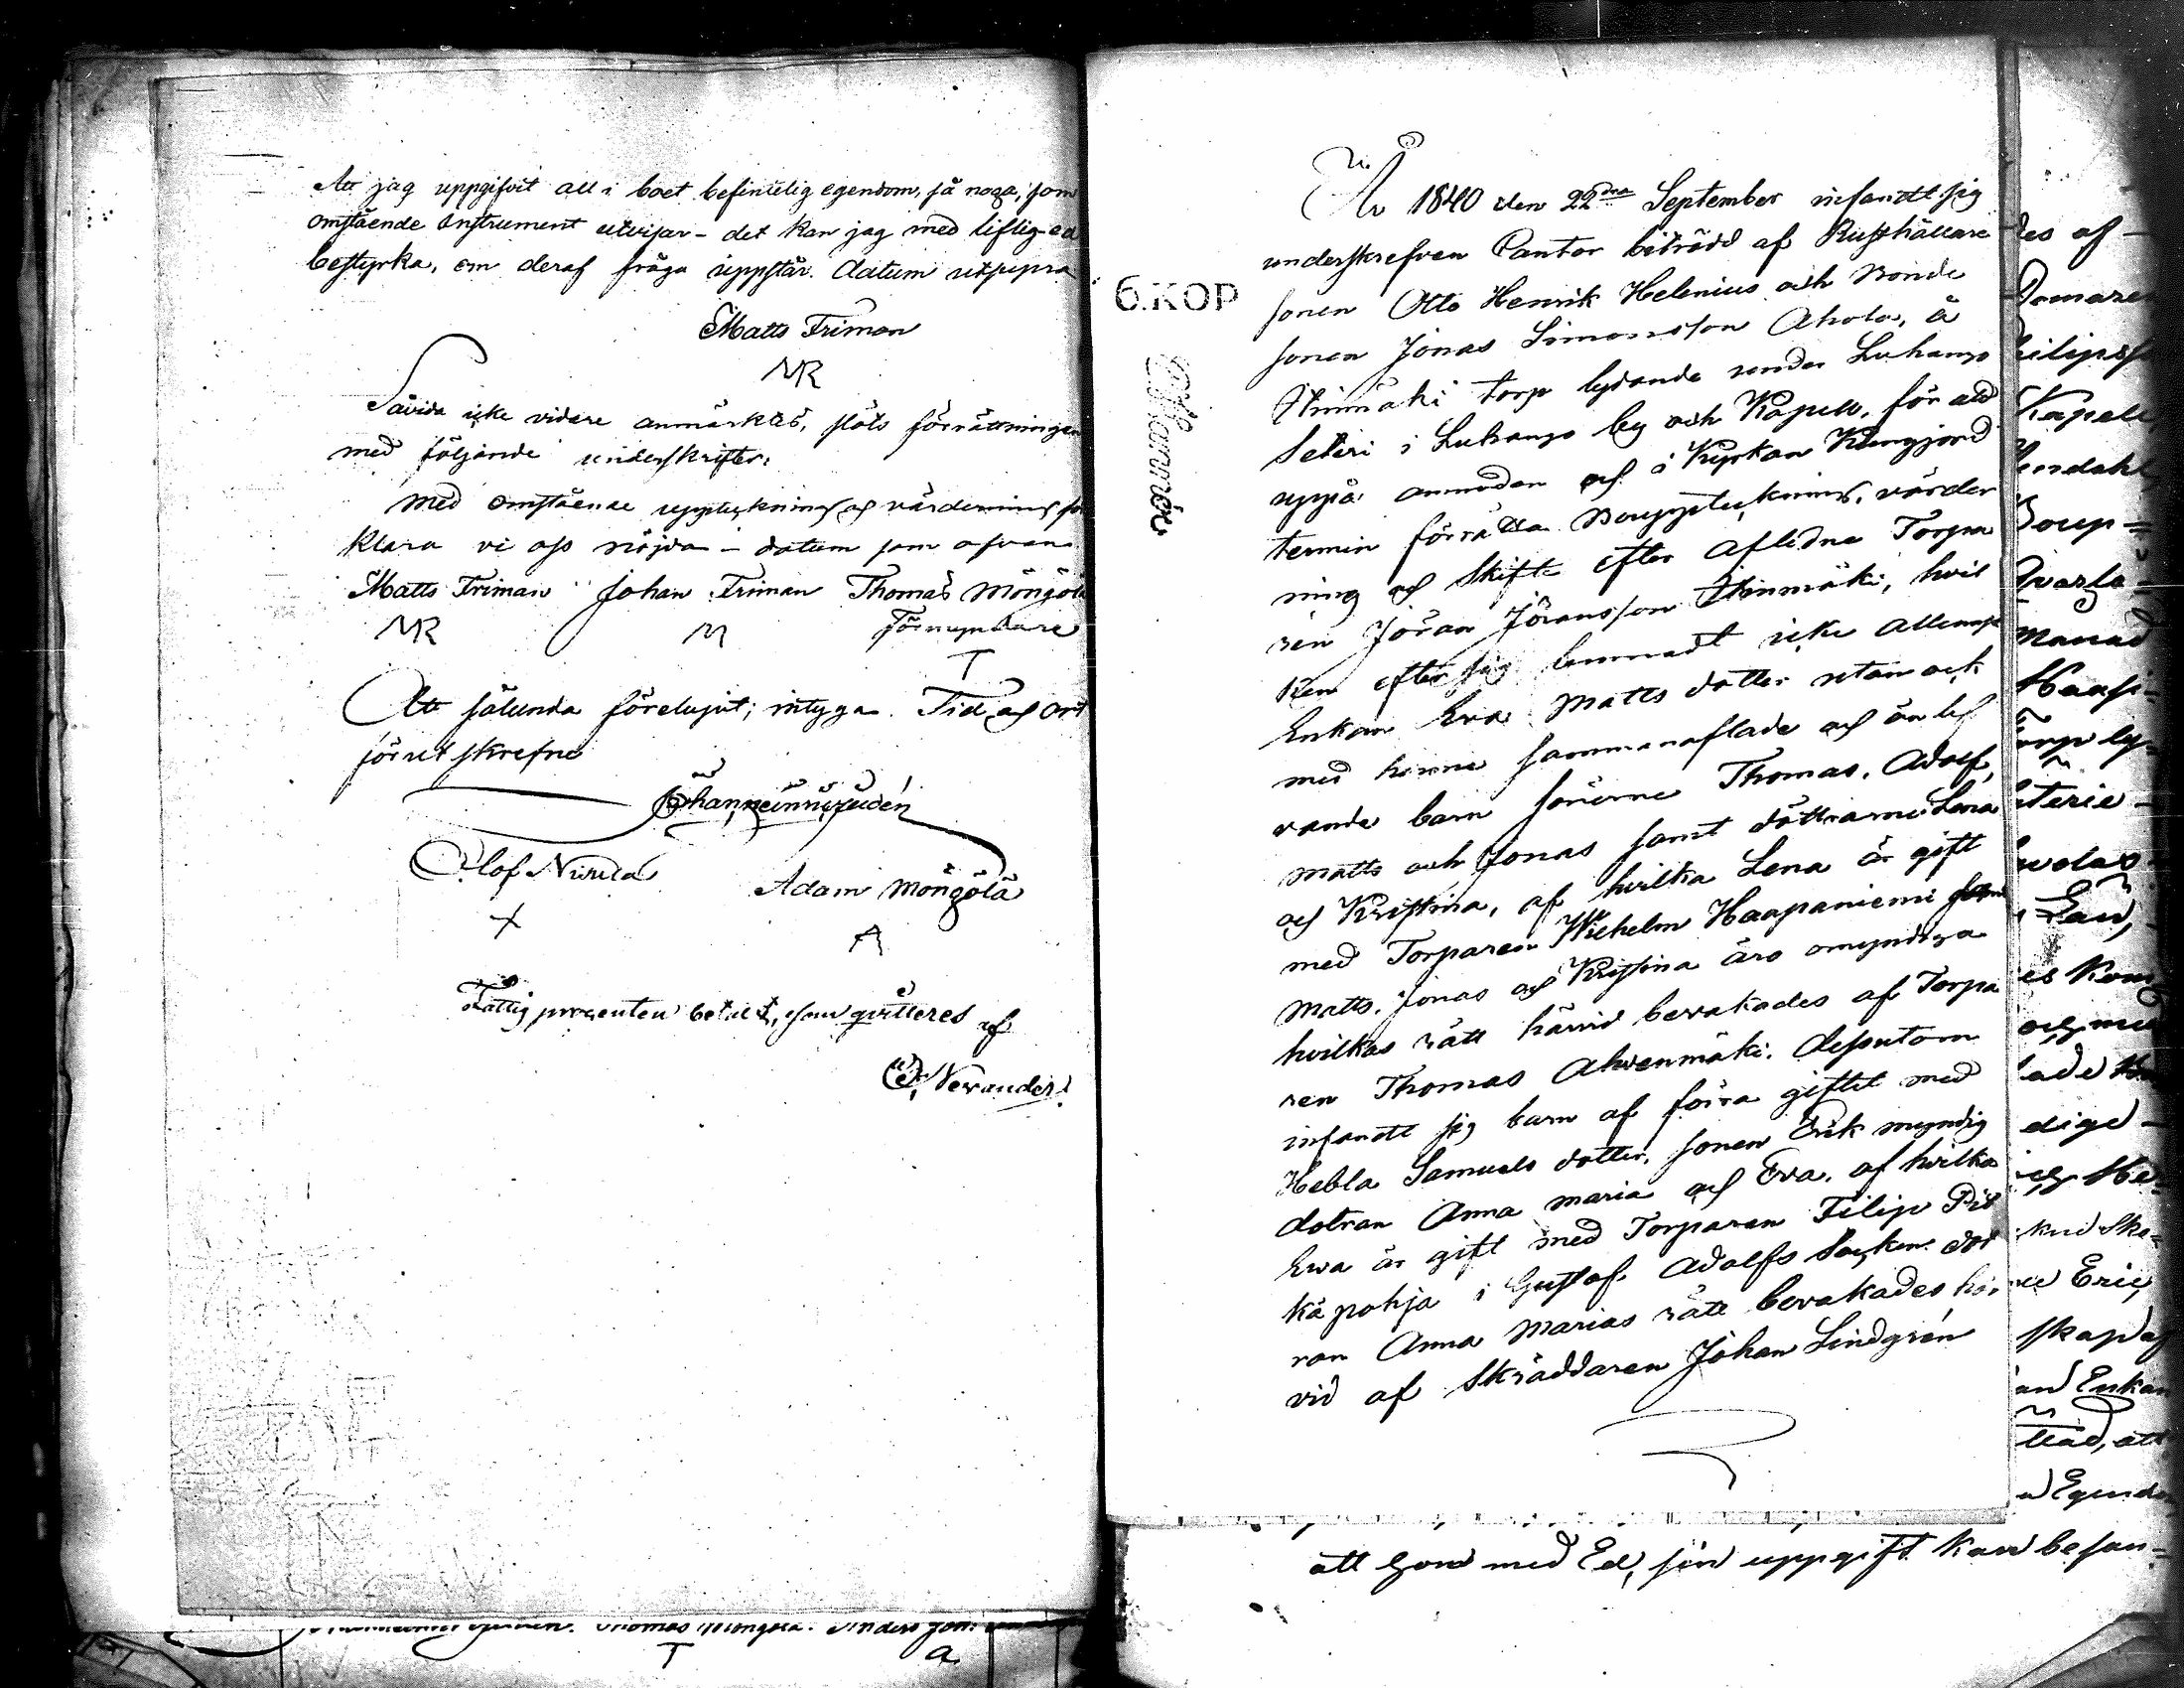 Att jag uppgifvit all i boet befintelig egendom, så noga, som
omstående Instrument utvisar - det kan jag med liflig ed
bestyrka, om deraf fråga uppstår. Datum utsupra
Matts Friman
MR
Såvida icke vidare anmärktes, slöts förrättningen
med följande underskrifter.
Med omstående uppteckning och värdering
klara vi oss nöjda - datum som ofvan
Matts Friman Johan Friman Thomas Möngölä
MR M Förmyndare
T
Att sålunda förelupit, intyga. Tid och ort
förutskrefne
Olof Niwila Adam Möngölä
X A
Fattig procenten betalt, som qvitteres af
Nevander.
Thomas Möngölä. Anders
T a
År 1840 den 22dra September infandt sig
underskrefven Cantor biträdd af Rusthållare
sonen Otto Henrik Helenius och Bonde
6.KOP
sonen Jonas Simonsson Ahola, å
torp lydande under Luhango
Säteri i Luhango by och Kapell, för att
uppå anmodan och i Kyrkan Kungjord
termin förrätta Bouppteckning, värder
ning och Skifte efter Aflidne Torpa
ren Jöran Jöransson, hvil
ken efter sig lemnadt icke allenast
Enkan Eva Matts dotter utan ock
med henne sammanaflade och än lef
vande barn sönerne Thomas, Adolf,
Matts och Jonas samt döttrarne Lena
och Kristina, af hvilka Lena är gift
med Torparen Wilhelm Haapaniemi
Matts, Jonas och Kristina äro omyndiga
hvilkas rätt härvid bevakades af Torpa
ren Thomas Ahvenmäki. Dessutom
infandt sig barn af förra giftet med
Hebla Samuels dotter, sonen Erik myndig
dotran Anna Maria och Eva, af hvilka
Ewa är gift med Torparen Filip Pit
käpohja i Gustaf Adolfs Socken dot
ran Anna Marias rätt bevakades här
vid af Skräddaren Johan Lindgrén
des af -
Domaren
Kapell
Boup=
månad
Torp ly=
äterie -
es Kom
och med
dige -
Eric
skap af
Enkan
att
Egendom
att hon med Ed, sin uppgift kan besan=